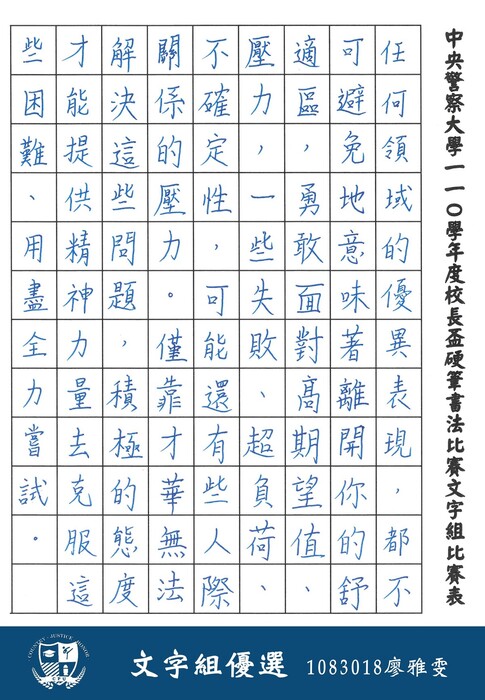 中央警察大學一一○學年度校長盃硬筆書法比賽文字組比賽表
任何領域的優異表現，都不
可避免地意味著離開你的舒
適區，勇敢面對高期望值、
壓力，一些失敗、超負荷、
不確定性，可能還有些人際
關係的壓力。僅靠才華無法
解決這些問題，積極的態度
才能提供精神力量去克服這
些困難、用盡全力嘗試。
文字組優選 1083018廖雅雯